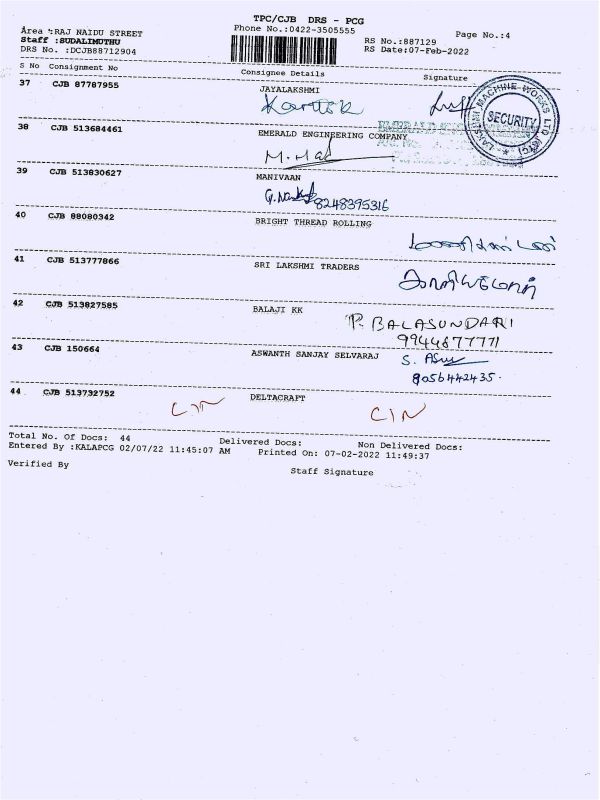 TPC/CJB DRS - PCG
Area :RAJ NAIDU STREET Phone No.:0422-3505555 Page No.:4
Staff :SUDALIMUTHU RS No.:887129
DRS No. :DCJB88712904 RS Date:07-Feb-2022
S No Consignment No Consignee Details Signature
37 CJB 87787955 JAYALAKSHMI
Karthik
LAKSHMI MACHINE WORKS LTD
SECURITY
38 CJB 513684461 EMERALD ENGINEERING COMPANY
39 CJB 513830627 MANIVAAN
8248395316
40 CJB 88080342 BRIGHT THREAD ROLLING
41 CJB 513777866 SRI LAKSHMI TRADERS
42 CJB 513827585 BALAJI KK
P. BALASUNDARI
9944677771
43 CJB 150664 ASWANTH SANJAY SELVARAJ
8056442435.
44 CJB 513732752 DELTACRAFT
CIN CIN
Total No. Of Docs: 44 Delivered Docs: Non Delivered Docs:
Entered By :KALAPCG 02/07/22 11:45:07 AM Printed On: 07-02-2022 11:49:37
Verified By Staff Signature